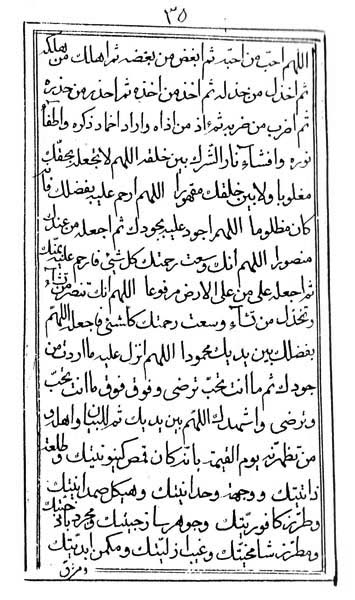 ٣٥
اللهم احب من احبه ثم ابغض من ابغضه ثم اهلك من اهلكه
ثم اخذل من خذله ثم اخذ من اخذه ثم احذر من حذره
ثم اضرب من ضربه ثم اذ من اذاه واراد اخماد ذكره واطفآء
نوره وافشآء نار الشرك بين خلقه اللهم لا تجعله بحقك
مغلوبا ولا بين خلقك مقهورا اللهم ارحم عليه بفضلك فانه
كان مظلوما اللهم اجود عليه بجودك ثم اجعله من عندك
منصورا اللهم انك وسعت رحمتك كل شئ فارحم عليه
ثم اجعله على من على الارض مرفوعا اللهم انك تنصر من تشآء
وتخذل من تشآء وسعت رحمتك كلشئ فاجعله اللهم
بفضلك بين يديك محمودا اللهم انزل عليه ما اردت من
جودك ثم ما انت تحب ترضى وفوق فوق ما انت تحب
وترضى واشهدك اللهم بين يديك ثم البيان واهله و
من تظهرنه يوم القيمة بانه كان قمص كينونيتك وطلعة
ذاتيتك ووجهة وحدانيتك وهيكل صمدانيتك
وطرز كافوريتك وجوهر ساذجيتك ومجرد
ومطرز شامخيتك وغيب ازليتك ومكمن ابديتك